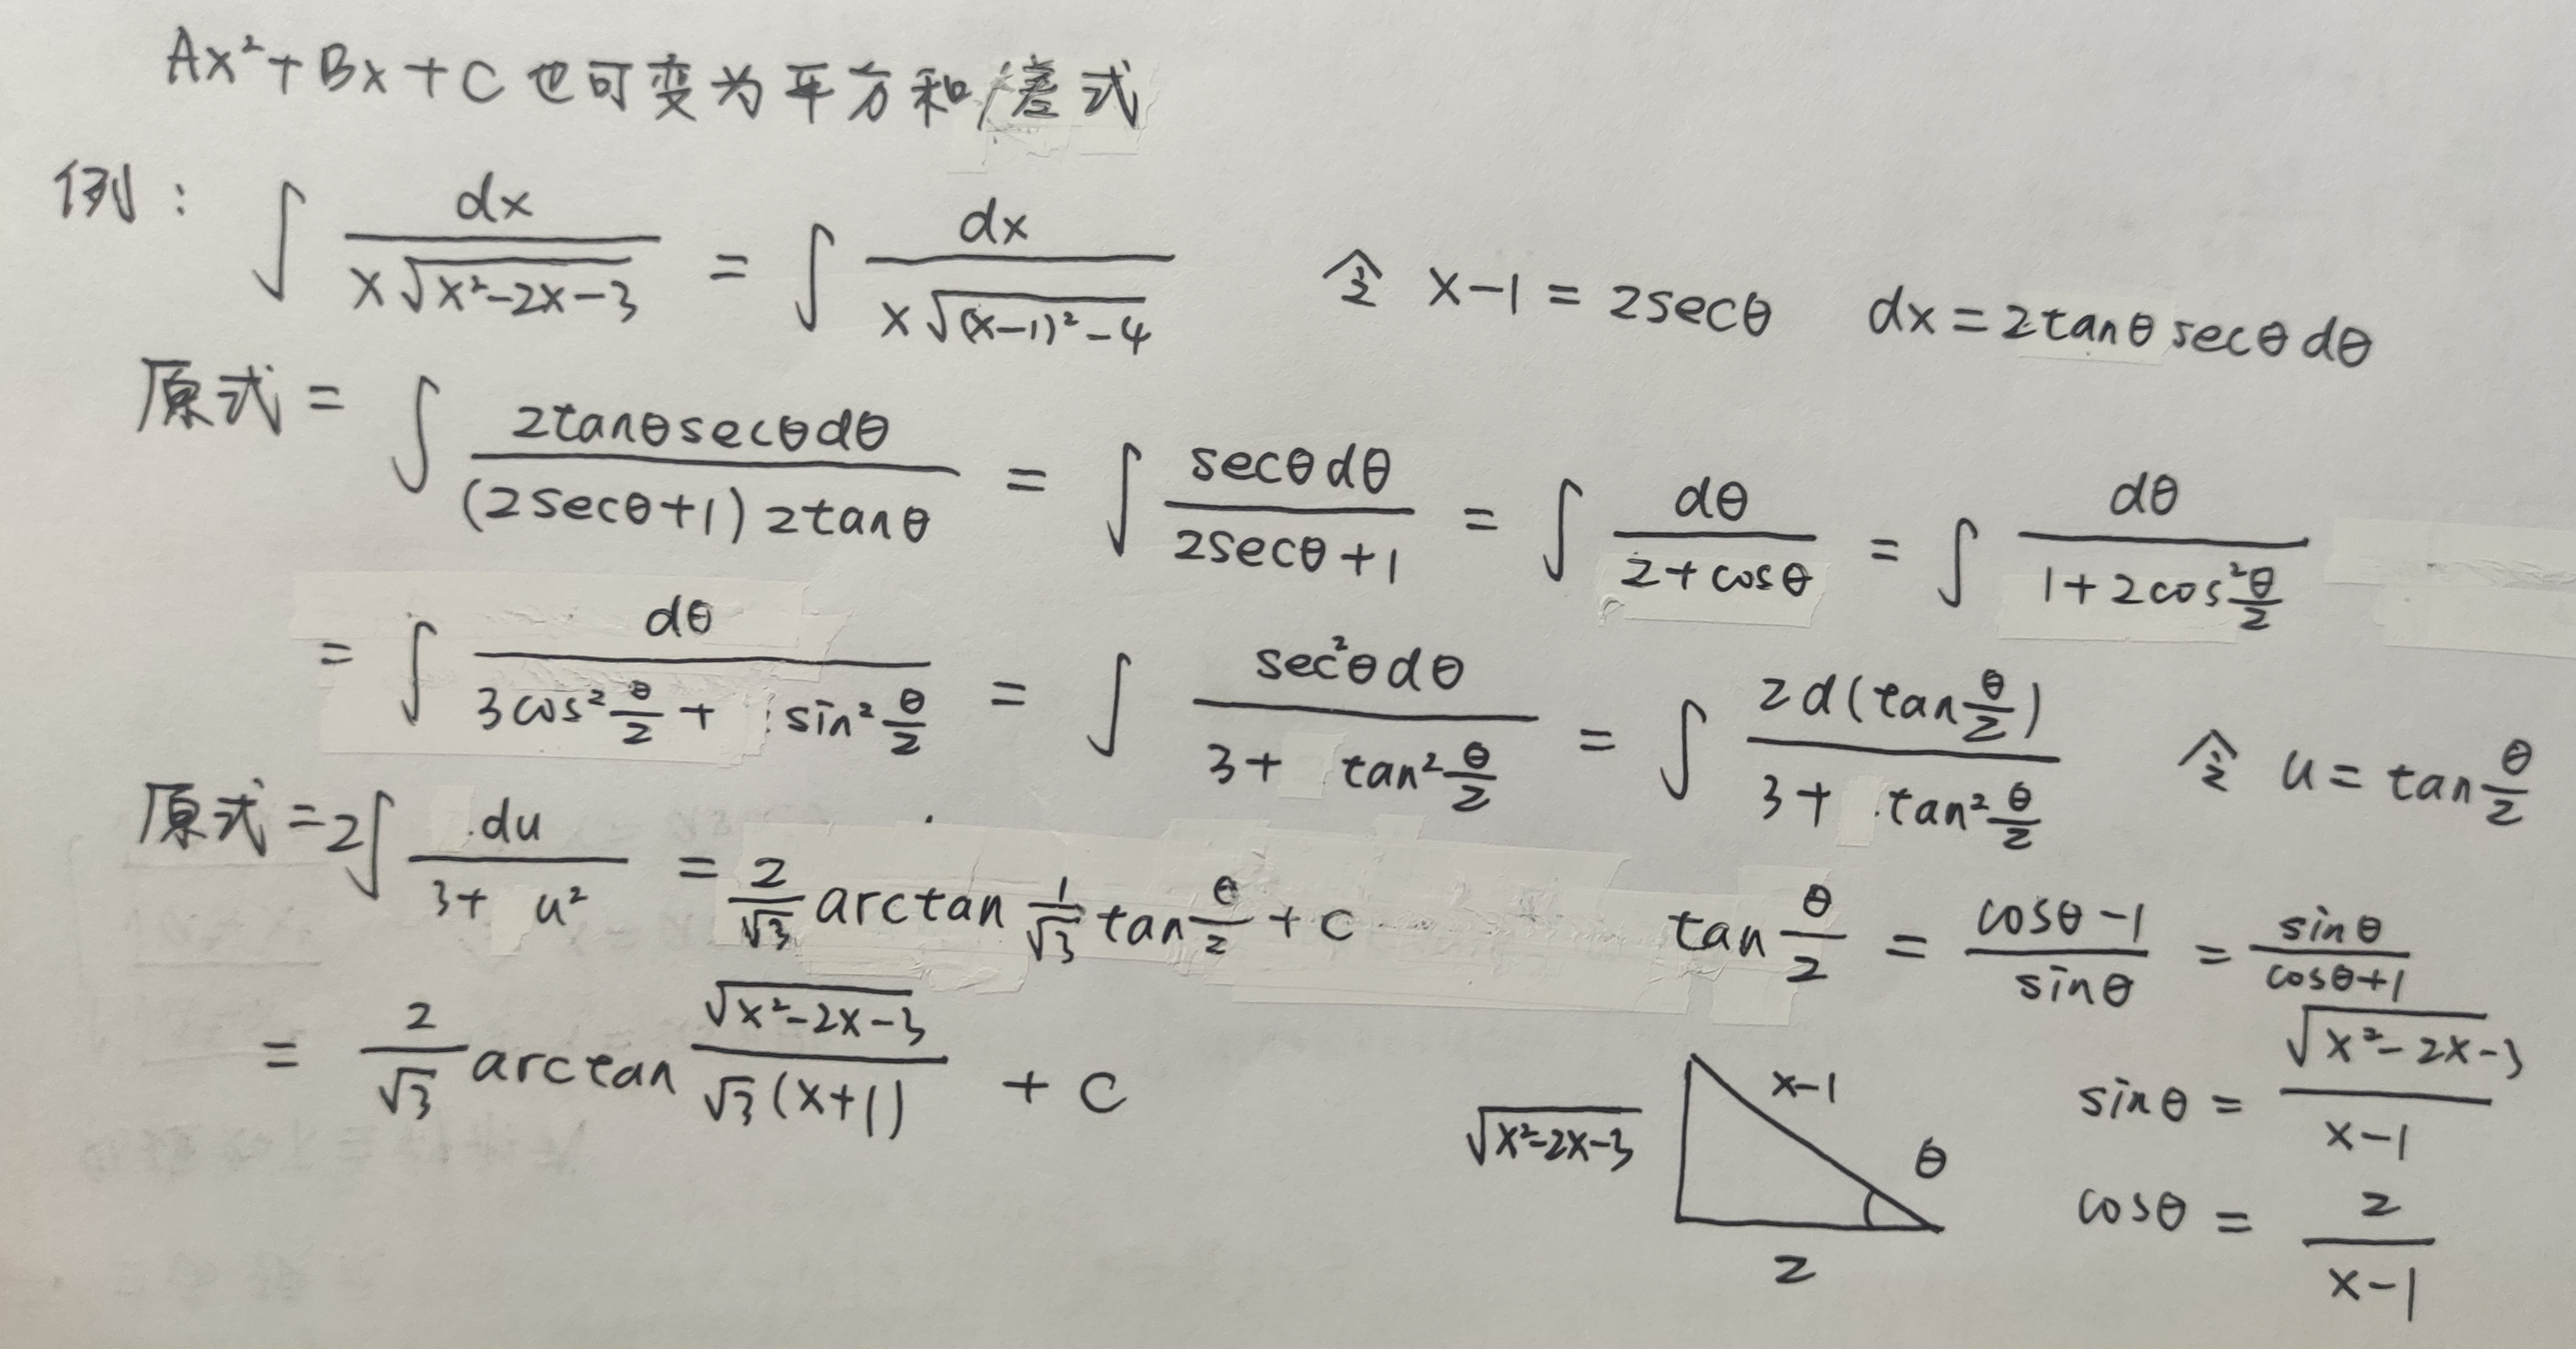 Ax²+Bx+C也可变为平方和/差式
例: ∫ dx / (x√(x²-2x-3)) = ∫ dx / (x√((x-1)²-4)) 令 x-1=2secθ dx=2tanθsecθdθ
原式= ∫ 2tanθsecθdθ / ((2secθ+1)2tanθ) = ∫ secθdθ / (2secθ+1) = ∫ dθ / (2+cosθ) = ∫ dθ / (1+2cos²(θ/2))
= ∫ dθ / (3cos²(θ/2) + sin²(θ/2)) = ∫ sec²θdθ / (3+tan²(θ/2)) = ∫ 2d(tan(θ/2)) / (3+tan²(θ/2)) 令 u=tan(θ/2)
原式=2∫ du / (3+u²) = (2/√3) arctan (1/√3) tan(θ/2) + C tan(θ/2) = (cosθ-1)/sinθ = sinθ/(cosθ+1)
= (2/√3) arctan (√(x²-2x-3) / (√3(x+1))) + C
√(x²-2x-3) x-1 θ 2
sinθ = √(x²-2x-3) / (x-1)
cosθ = 2 / (x-1)